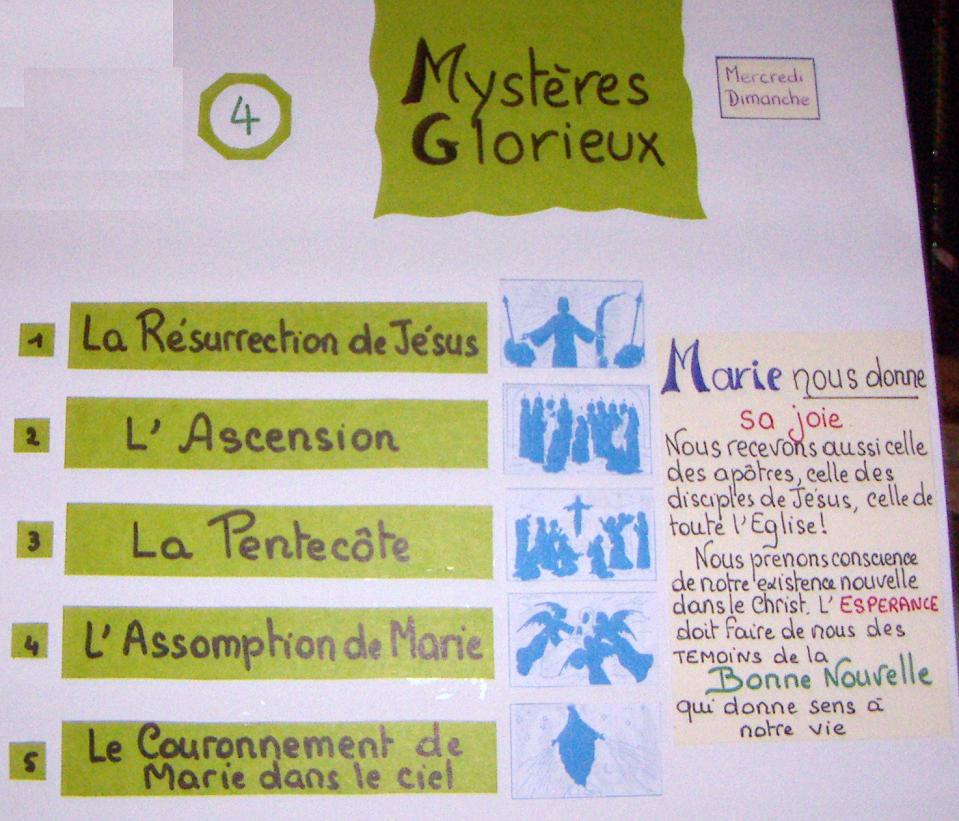 4
Mystères
Glorieux
Mercredi
Dimanche
1
La Résurrection de Jésus
2
L' Ascension
3
La Pentecôte
4
L'Assomption de Marie
5
Le Couronnement de
Marie dans le ciel
Marie nous donne
sa joie
Nous recevons aussi celle
des apôtres, celle des
disciples de Jésus, celle de
toute l'Eglise!
Nous prenons conscience
de notre existence nouvelle
dans le Christ. L' ESPERANCE
doit faire de nous des
TEMOINS de la
Bonne Nouvelle
qui donne sens à
notre vie